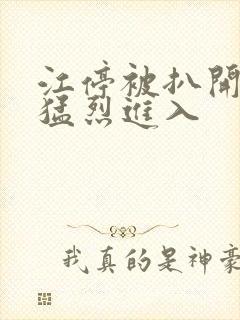 江停被扒開
猛烈進入
我真的是神豪